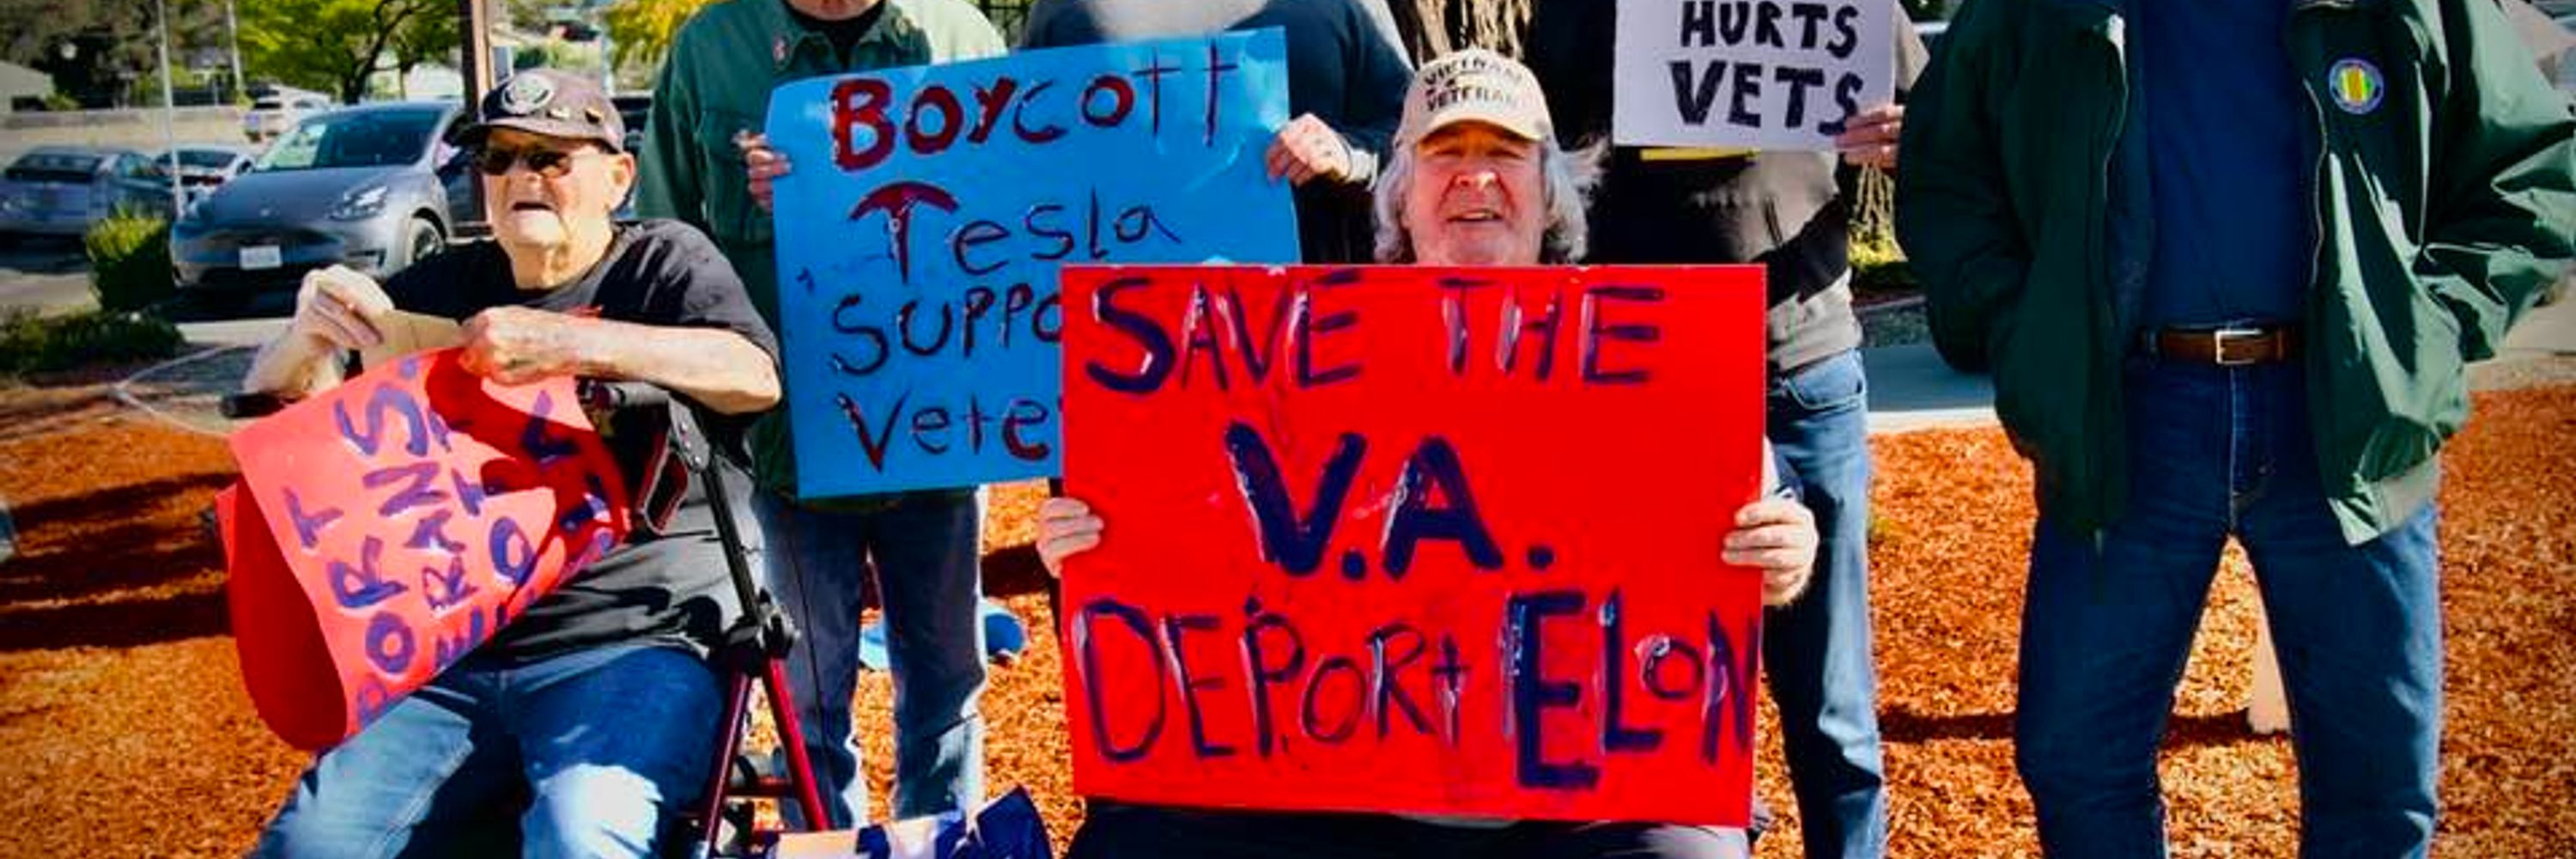 BOYCOTT
Tesla
SUPPO
Vete
HURTS
VETS
VIETNAM
VETERAN
SAVE THE
V.A.
DEPORT ELON
PORT
RANS.